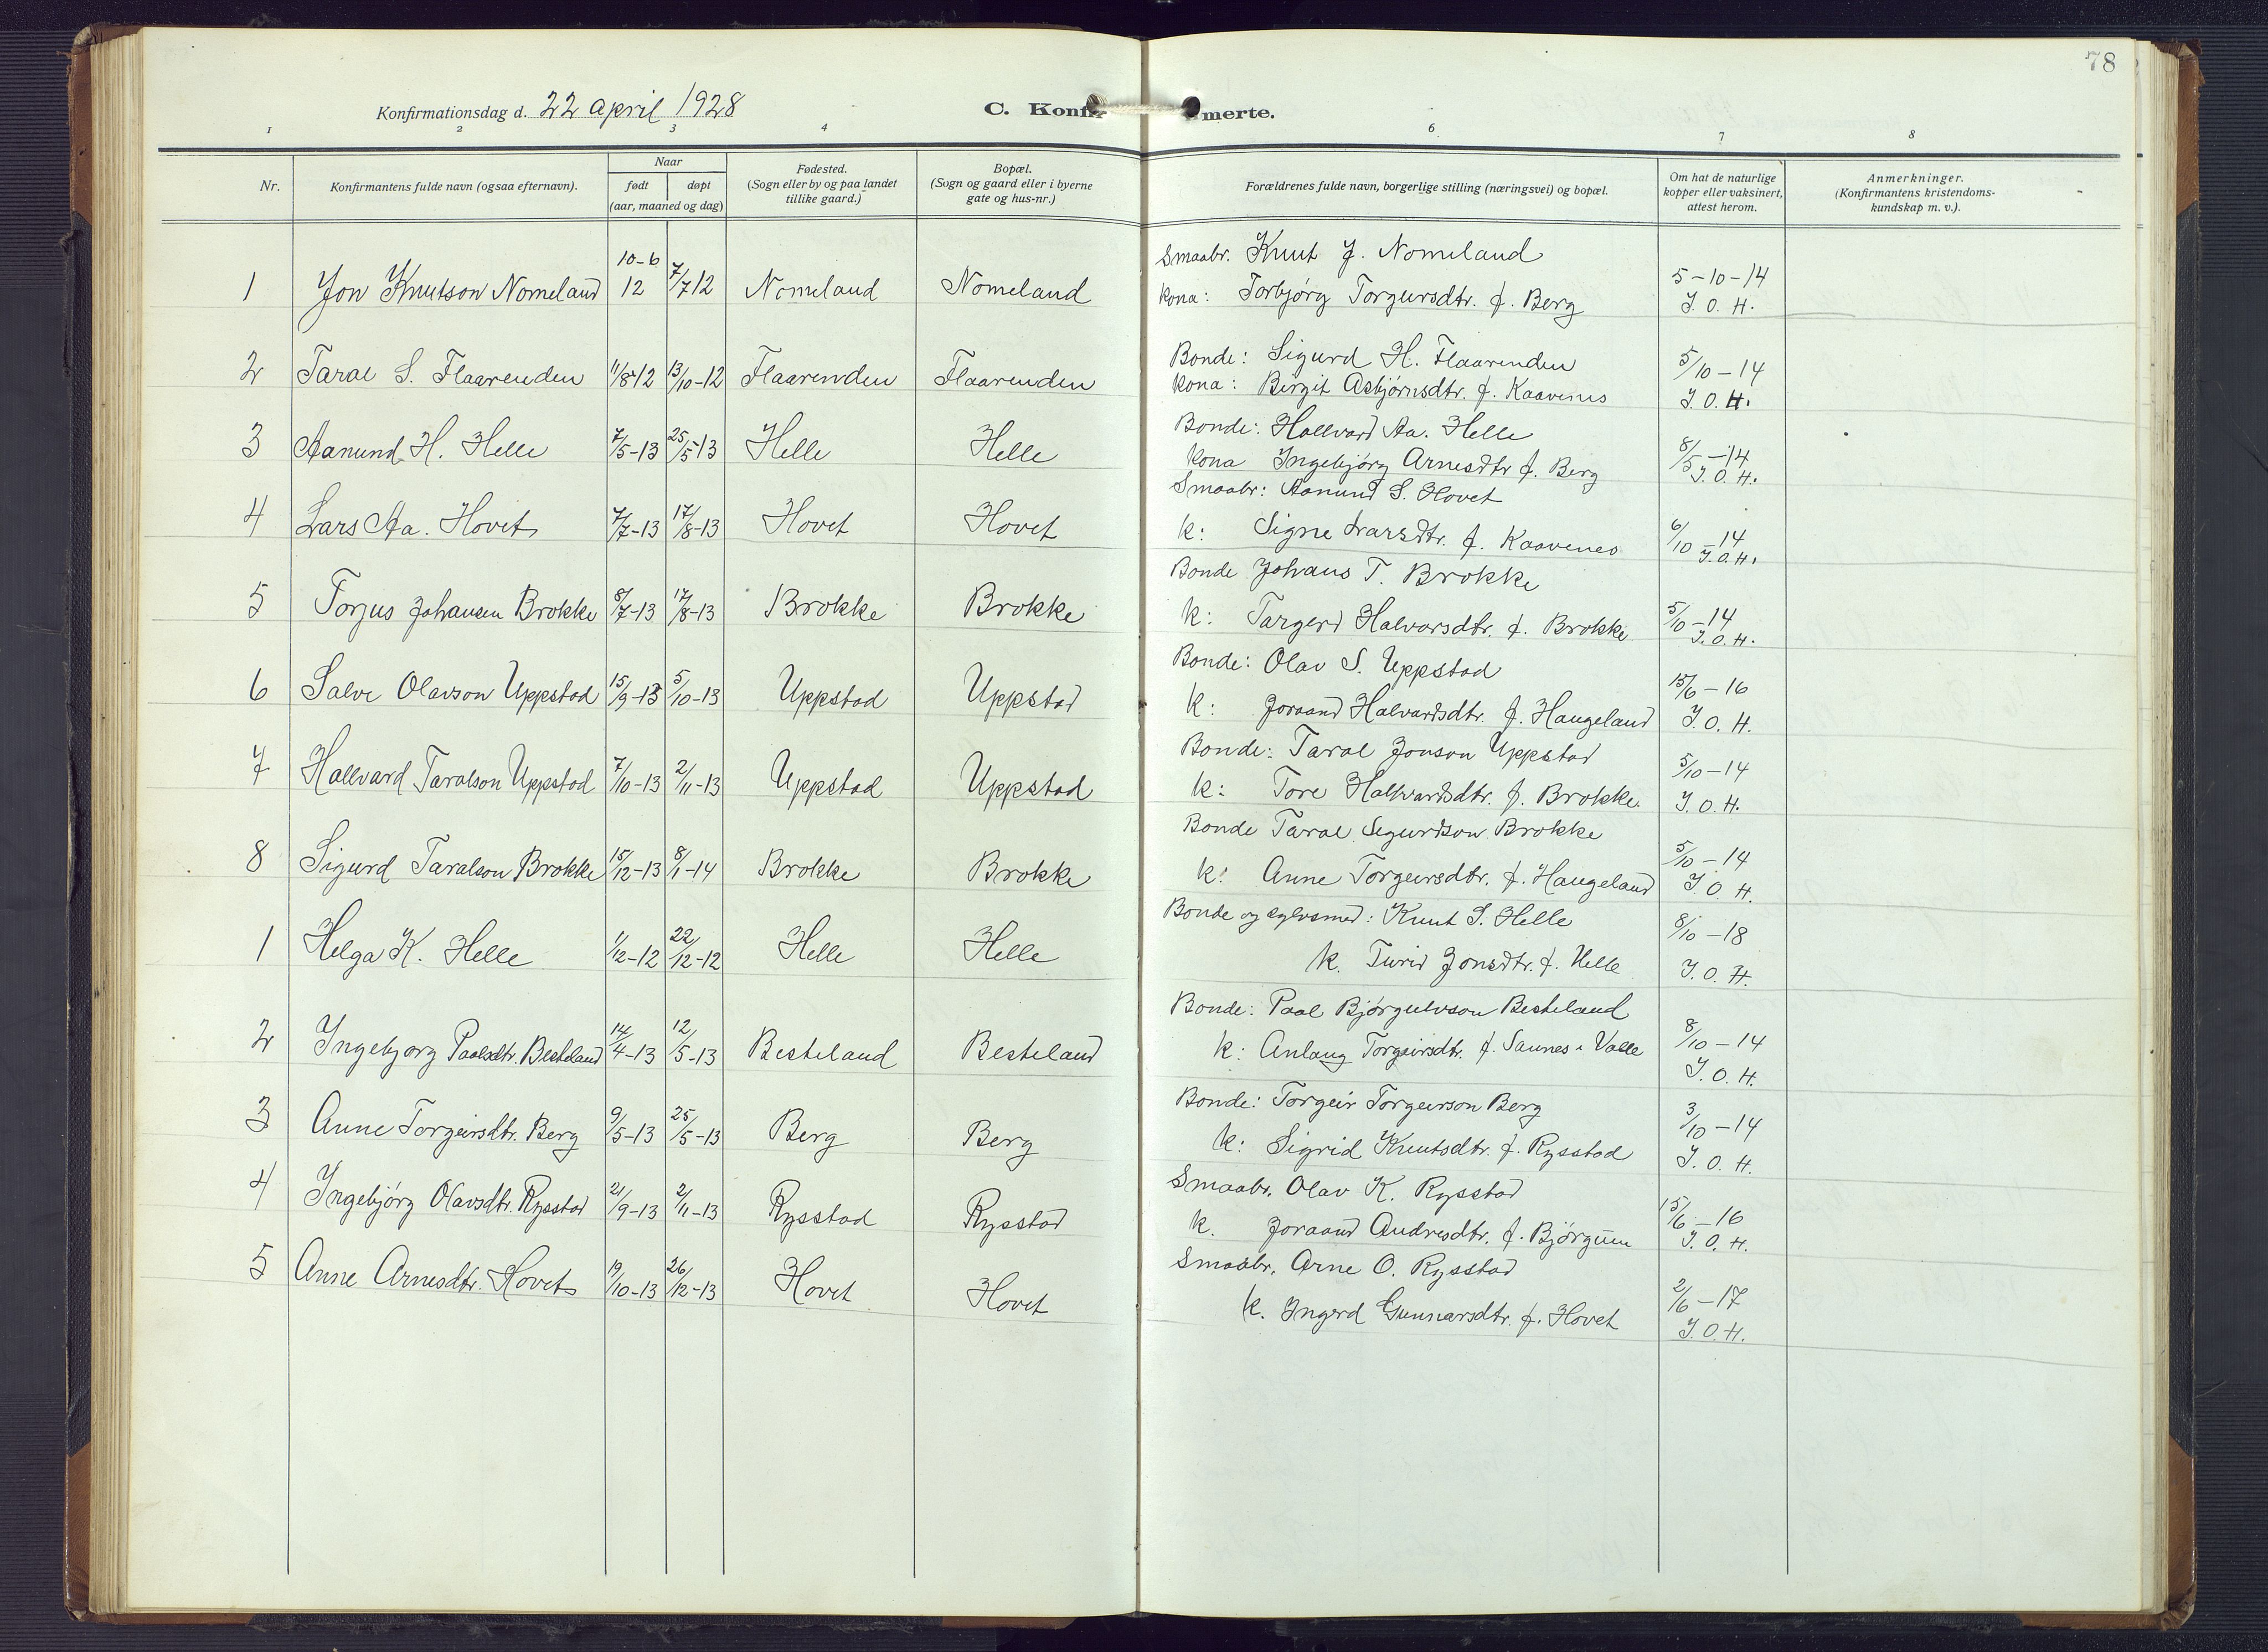 78
Konfirmationsdag d. 22 april 1928 C. Konfirmerte.
1 2 3 4 6 7 8
Nr. Konfirmantens fulde navn (ogsaa efternavn). Naar født døpt (aar, maaned og dag) Fødested. (Sogn eller by og paa landet tillike gaard.) Bopæl. (Sogn og gaard eller i byerne gate og hus-nr.) Forældrenes fulde navn, borgerlige stilling (næringsvei) og bopæl. Om hat de naturlige kopper eller vaksinert, attest herom. Anmerkninger. (Konfirmantens kristendoms-kundskap m. v.).
1 Jon Knutson Nomeland 10-6 12 7/7 12 Nomeland Nomeland Smaabr. Knut J. Nomeland 5-10-14
kona: Torbjørg Torgeirsdtr. f. Berg J. O. H.
2 Taral S. Flaarenden 11/8-12 13/10-12 Flaarenden Flaarenden Bonde: Sigurd H. Flaarenden 5/10-14
kona: Birgit Asbjørnsdtr. f. Kaavenes J. O. H.
3 Aanund H. Helle 7/5-13 25/5-13 Helle Helle Bonde: Hallvard Aa. Helle 8/5-14
kona Ingebjørg Arnesdtr f. Berg J. O. H.
4 Lars Aa. Hovet 7/7-13 17/8-13 Hovet Hovet Smaabr: Aanund S. Hovet 6/10-14
k: Signe Larsdtr. f. Kaavenes J. O. H.
5 Torjus Johansen Brokke 8/7-13 17/8-13 Brokke Brokke Bonde Johans T. Brokke 5/10-14
k: Targerd Halvorsdtr. f. Brokke J. O. H.
6 Salve Olavson Uppstad 15/9-13 5/10-13 Uppstad Uppstad Bonde: Olav S. Uppstad 15/6-16
k: Joraand Halvardsdtr. f. Haugeland J. O. H.
7 Hallvard Taralson Uppstad 7/10-13 2/11-13 Uppstad Uppstad Bonde: Taral Jonson Uppstad 5/10-14
k: Tore Hallvardsdtr. f. Brokke. J. O. H.
8 Sigurd Taralson Brokke 15/12-13 8/1-14 Brokke Brokke Bonde Taral Sigurdson Brokke 5/10-14
k: Anne Torgeirsdtr. f. Haugeland J. O. H.
1 Helga K. Helle 1/12-12 22/12-12 Helle Helle Bonde og sylvsmed: Knut S. Helle 8/10-18
k. Turid Jonsdtr. f. Helle J. O. H.
2 Ingebjorg Paalsdtr. Besteland 14/4-13 12/5-13 Besteland Besteland Bonde: Paal Bjørgulvson Besteland 8/10-14
k: Anlaug Torgeirsdtr. f. Saunes i Valle J. O. H.
3 Anne Torgeirsdtr. Berg 9/5-13 25/5-13 Berg Berg Bonde: Torgeir Torgeirson Berg 3/10-14
k: Sigrid Knutsdtr. f. Rysstad J. O. H.
4 Ingebjørg Olavsdtr. Rysstad 21/9-13 2/11-13 Rysstad Rysstad Smaabr. Olav K. Rysstad 15/6-16
k. Joraand Andresdtr. f. Bjørgum J. O. H.
5 Anne Arnesdtr. Hovet 19/10-13 26/12-13 Hovet Hovet Smaabr. Arne O. Rysstad 2/6-17
k. Ingerd Gunnarsdtr. f. Hovet J. O. H.